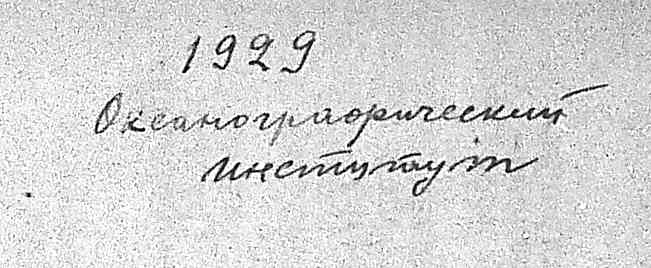 1929
Океанографический
институт